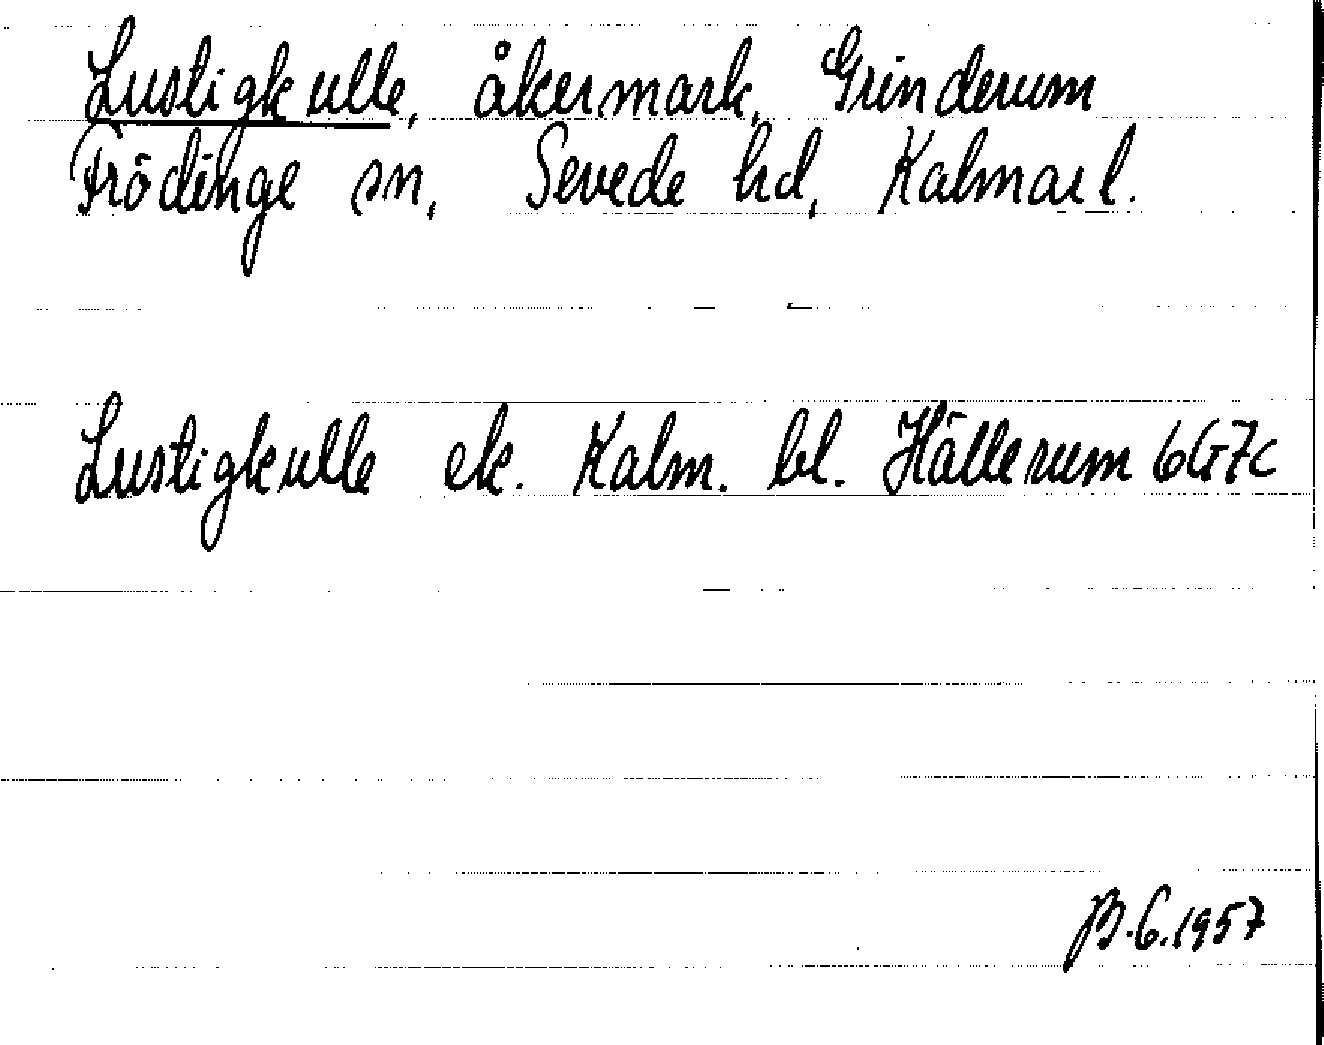 Lustigkulle, åkermark, Grinderum
Frödinge sn, Sevede hd, Kalmar l.
Lustigkulle ek. Kalm. bl. Hällerum 6G7c
B.G. 1957